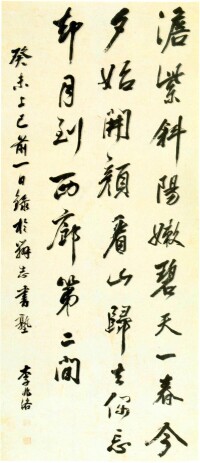 澹紫斜陽嫩碧天一春今
夕始開顏看山歸去僾忘
却月到西廊第二間
癸未上巳前一日錄於辨志書塾
李兆洛